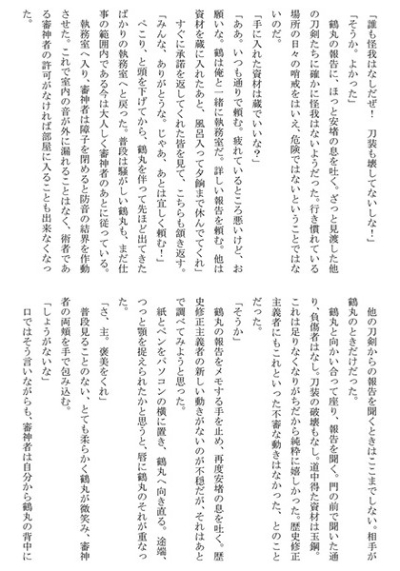 「誰も怪我はなしだぜ！　刀装も壊してないしな！」
「そうか、よかった」
　鶴丸の報告に、ほっと安堵の息を吐く。ざっと見渡した他
の刀剣たちに確かに怪我はないようだった。行き慣れている
場所の日々の哨戒をはいえ、危険ではないということではな
いのだ。
「手に入れた資材は蔵でいいな？」
「ああ。いつも通りで頼む。疲れているところ悪いけど、お
願いな。鶴は俺と一緒に執務室だ。詳しい報告を頼む。他は
資材を蔵に入れたあと、風呂入って夕餉まで休んでてくれ」
　すぐに承諾を返してくれた皆を見て、こちらも頷き返す。
「みんな、ありがとうな。じゃあ、あとは宜しく頼む！」
　ぺこり、と頭を下げてから、鶴丸を伴って先ほど出てきた
ばかりの執務室へと戻った。普段は騒がしい鶴丸も、まだ仕
事の範囲内である今は大人しく審神者のあとに従っている。
　執務室へ入り、審神者は障子を閉めると防音の結界を作動
させた。これで室内の音が外に漏れることはなく、術者であ
る審神者の許可がなければ部屋に入ることも出来なくなっ
た。
　他の刀剣からの報告を聞くときはここまでしない。相手が
鶴丸のときだけだった。
　鶴丸と向かい合って座り、報告を聞く。門の前で聞いた通
り、負傷者はなし。刀装の破壊もなし。道中得た資材は玉鋼。
これは足りなくなりがちだから純粋に嬉しかった。歴史修正
主義者にもこれといった不審な動きはなかった、とのこと
だった。
「そうか」
　鶴丸の報告をメモする手を止め、再度安堵の息を吐く。歴
史修正主義者の新しい動きがないのが不穏だが、それはあと
で調べてみようと思った。
　紙とペンをパソコンの横に置き、鶴丸へ向き直る。途端、
つっと顎を捉えられたかと思うと、唇に鶴丸のそれが重なっ
た。
「さ、主。褒美をくれ」
　普段見ることのない、とても柔らかく鶴丸が微笑み、審神
者の両頬を手で包み込む。
「しょうがないな」
　口ではそう言いながらも、審神者は自分から鶴丸の背中に